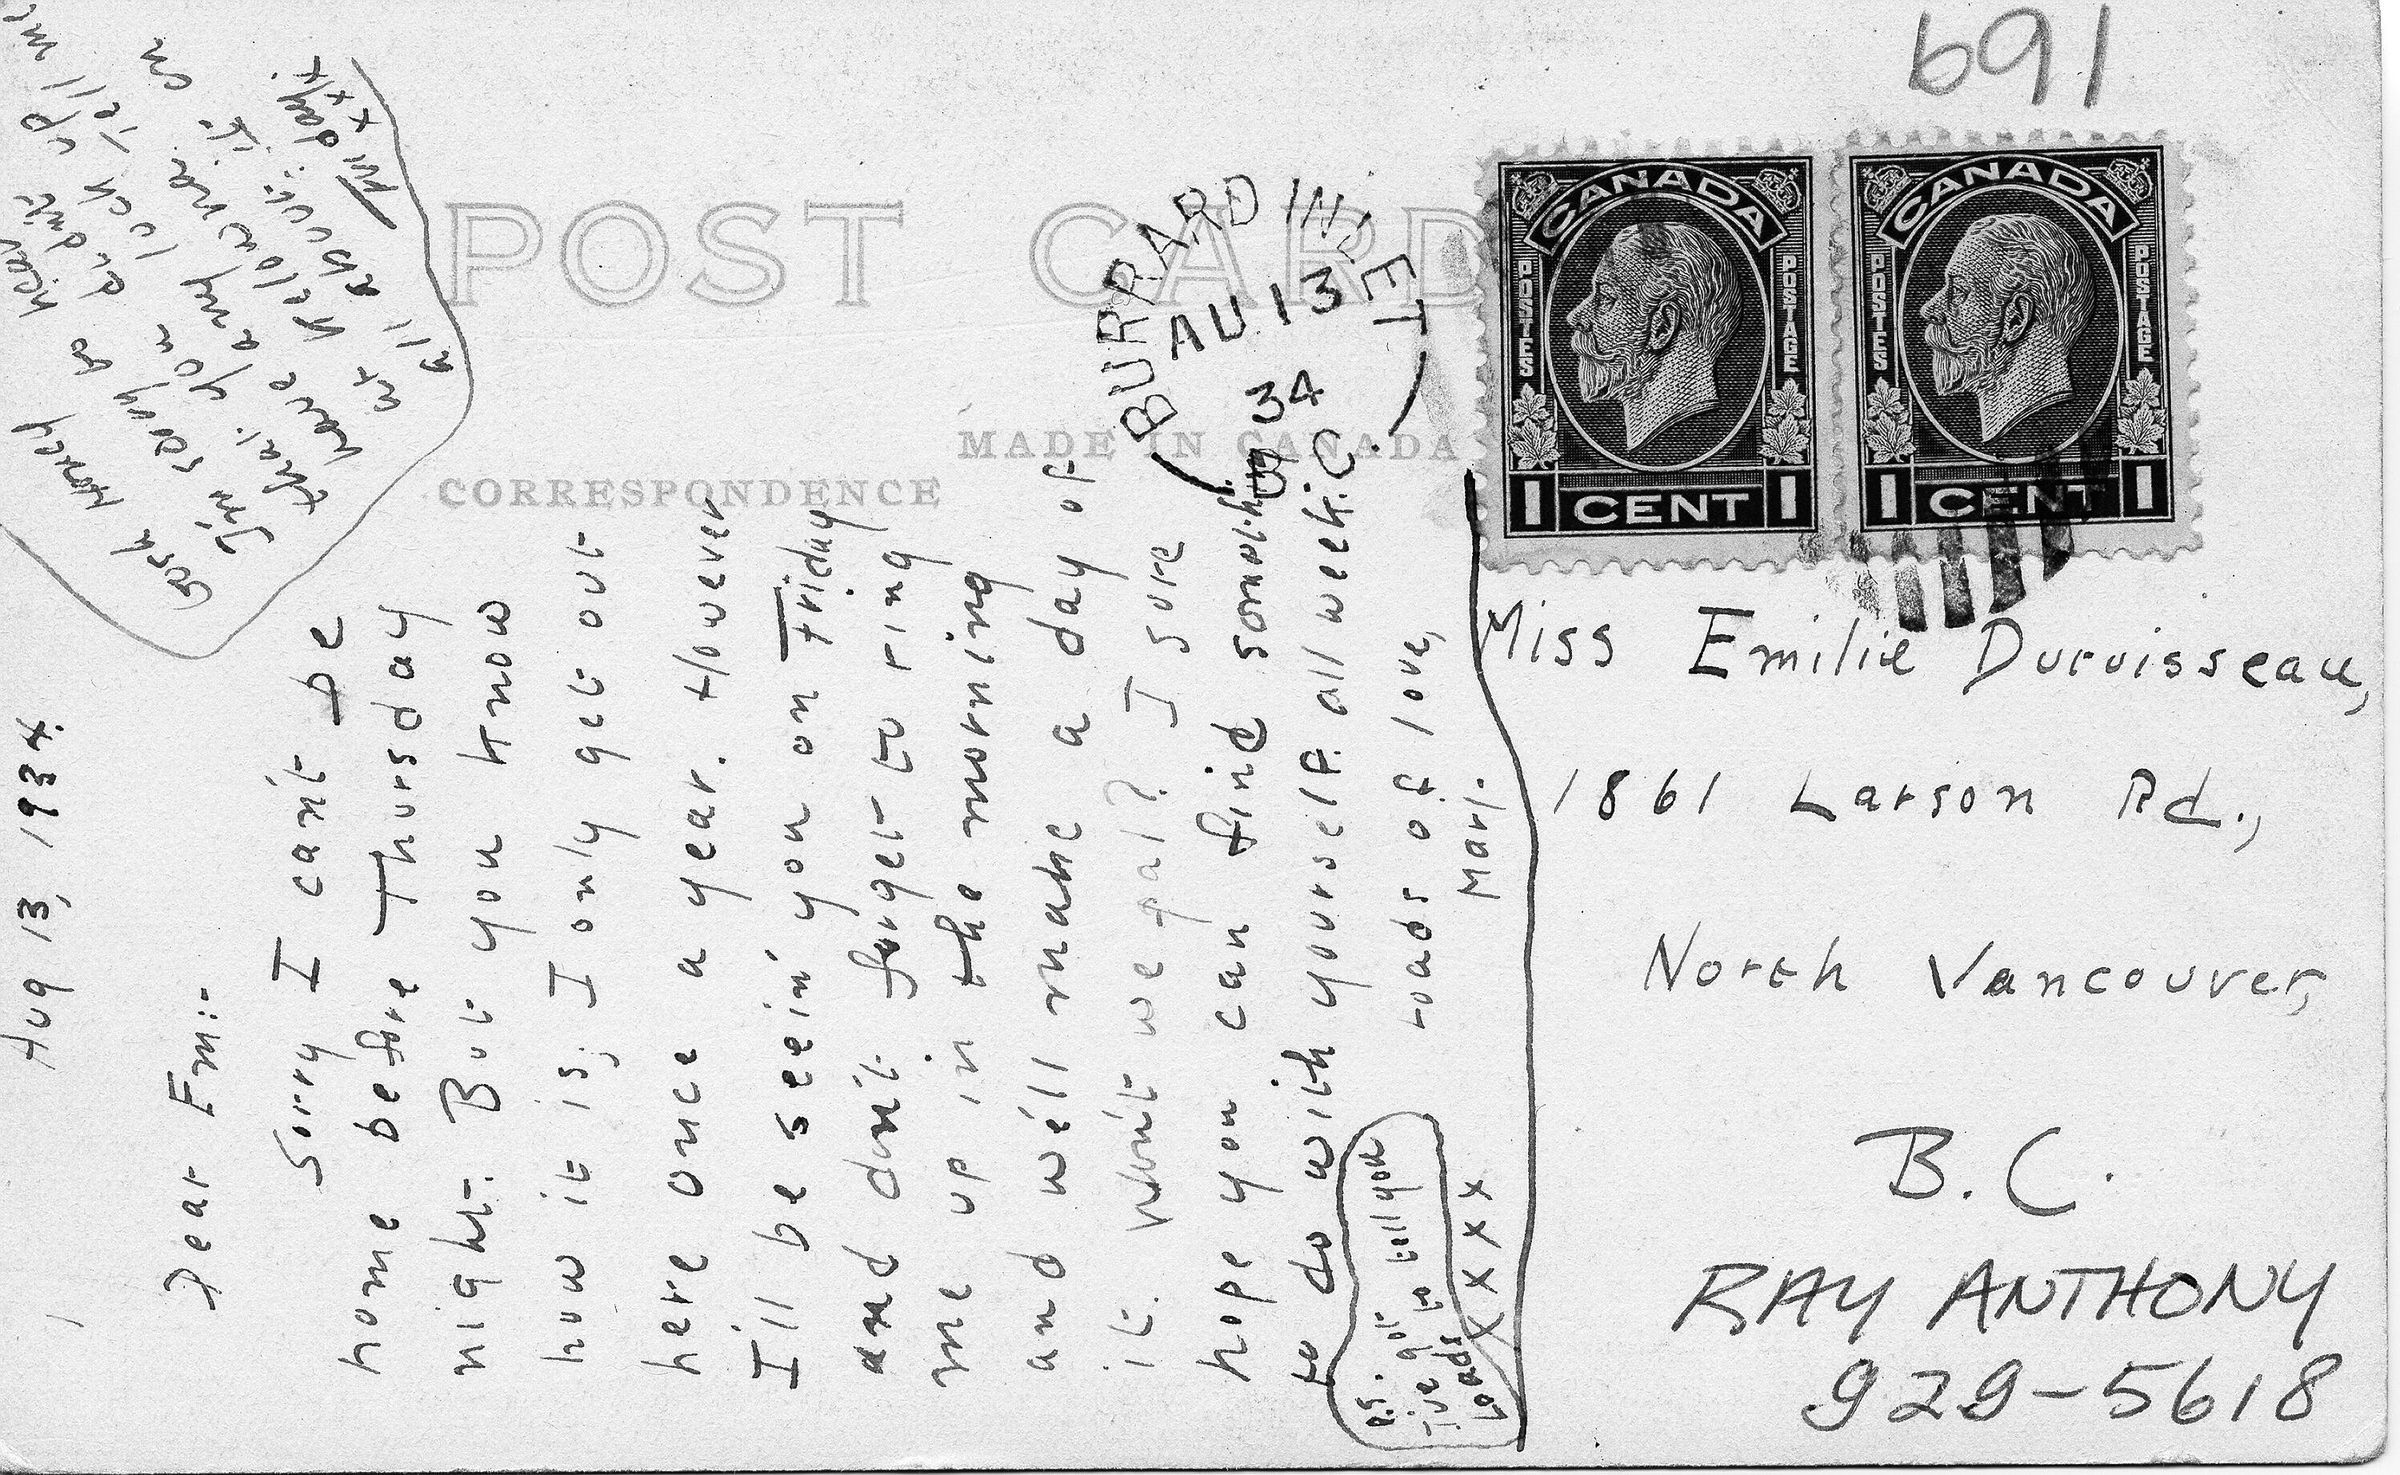 691
POST CARD
MADE IN CANADA
CORRESPONDENCE
BURRARD INLET
AU 13
34
B.C.
CANADA
POSTES
POSTAGE
1 CENT 1
CANADA
POSTES
POSTAGE
1 CENT 1
Aug 13, 1934.
Dear Em:-
Sorry I can't be
home before Thursday
night. But you know
how it is, I only get out
here once a year. However
I'll be seein you on Friday
and don't forget to ring
me up in the morning
and will make a day of
it. Won't we pal? I sure
hope you can find someth.
to do with yourself all week.
Loads of love,
Marj.
xxxx
P.S.
I've got
Loads to tell you
Gosh Honey
I'm sorry
all about it
Miss Emilie Duruisseau,
1861 Larson Rd.,
North Vancouver,
B.C.
RAY ANTHONY
929-5618